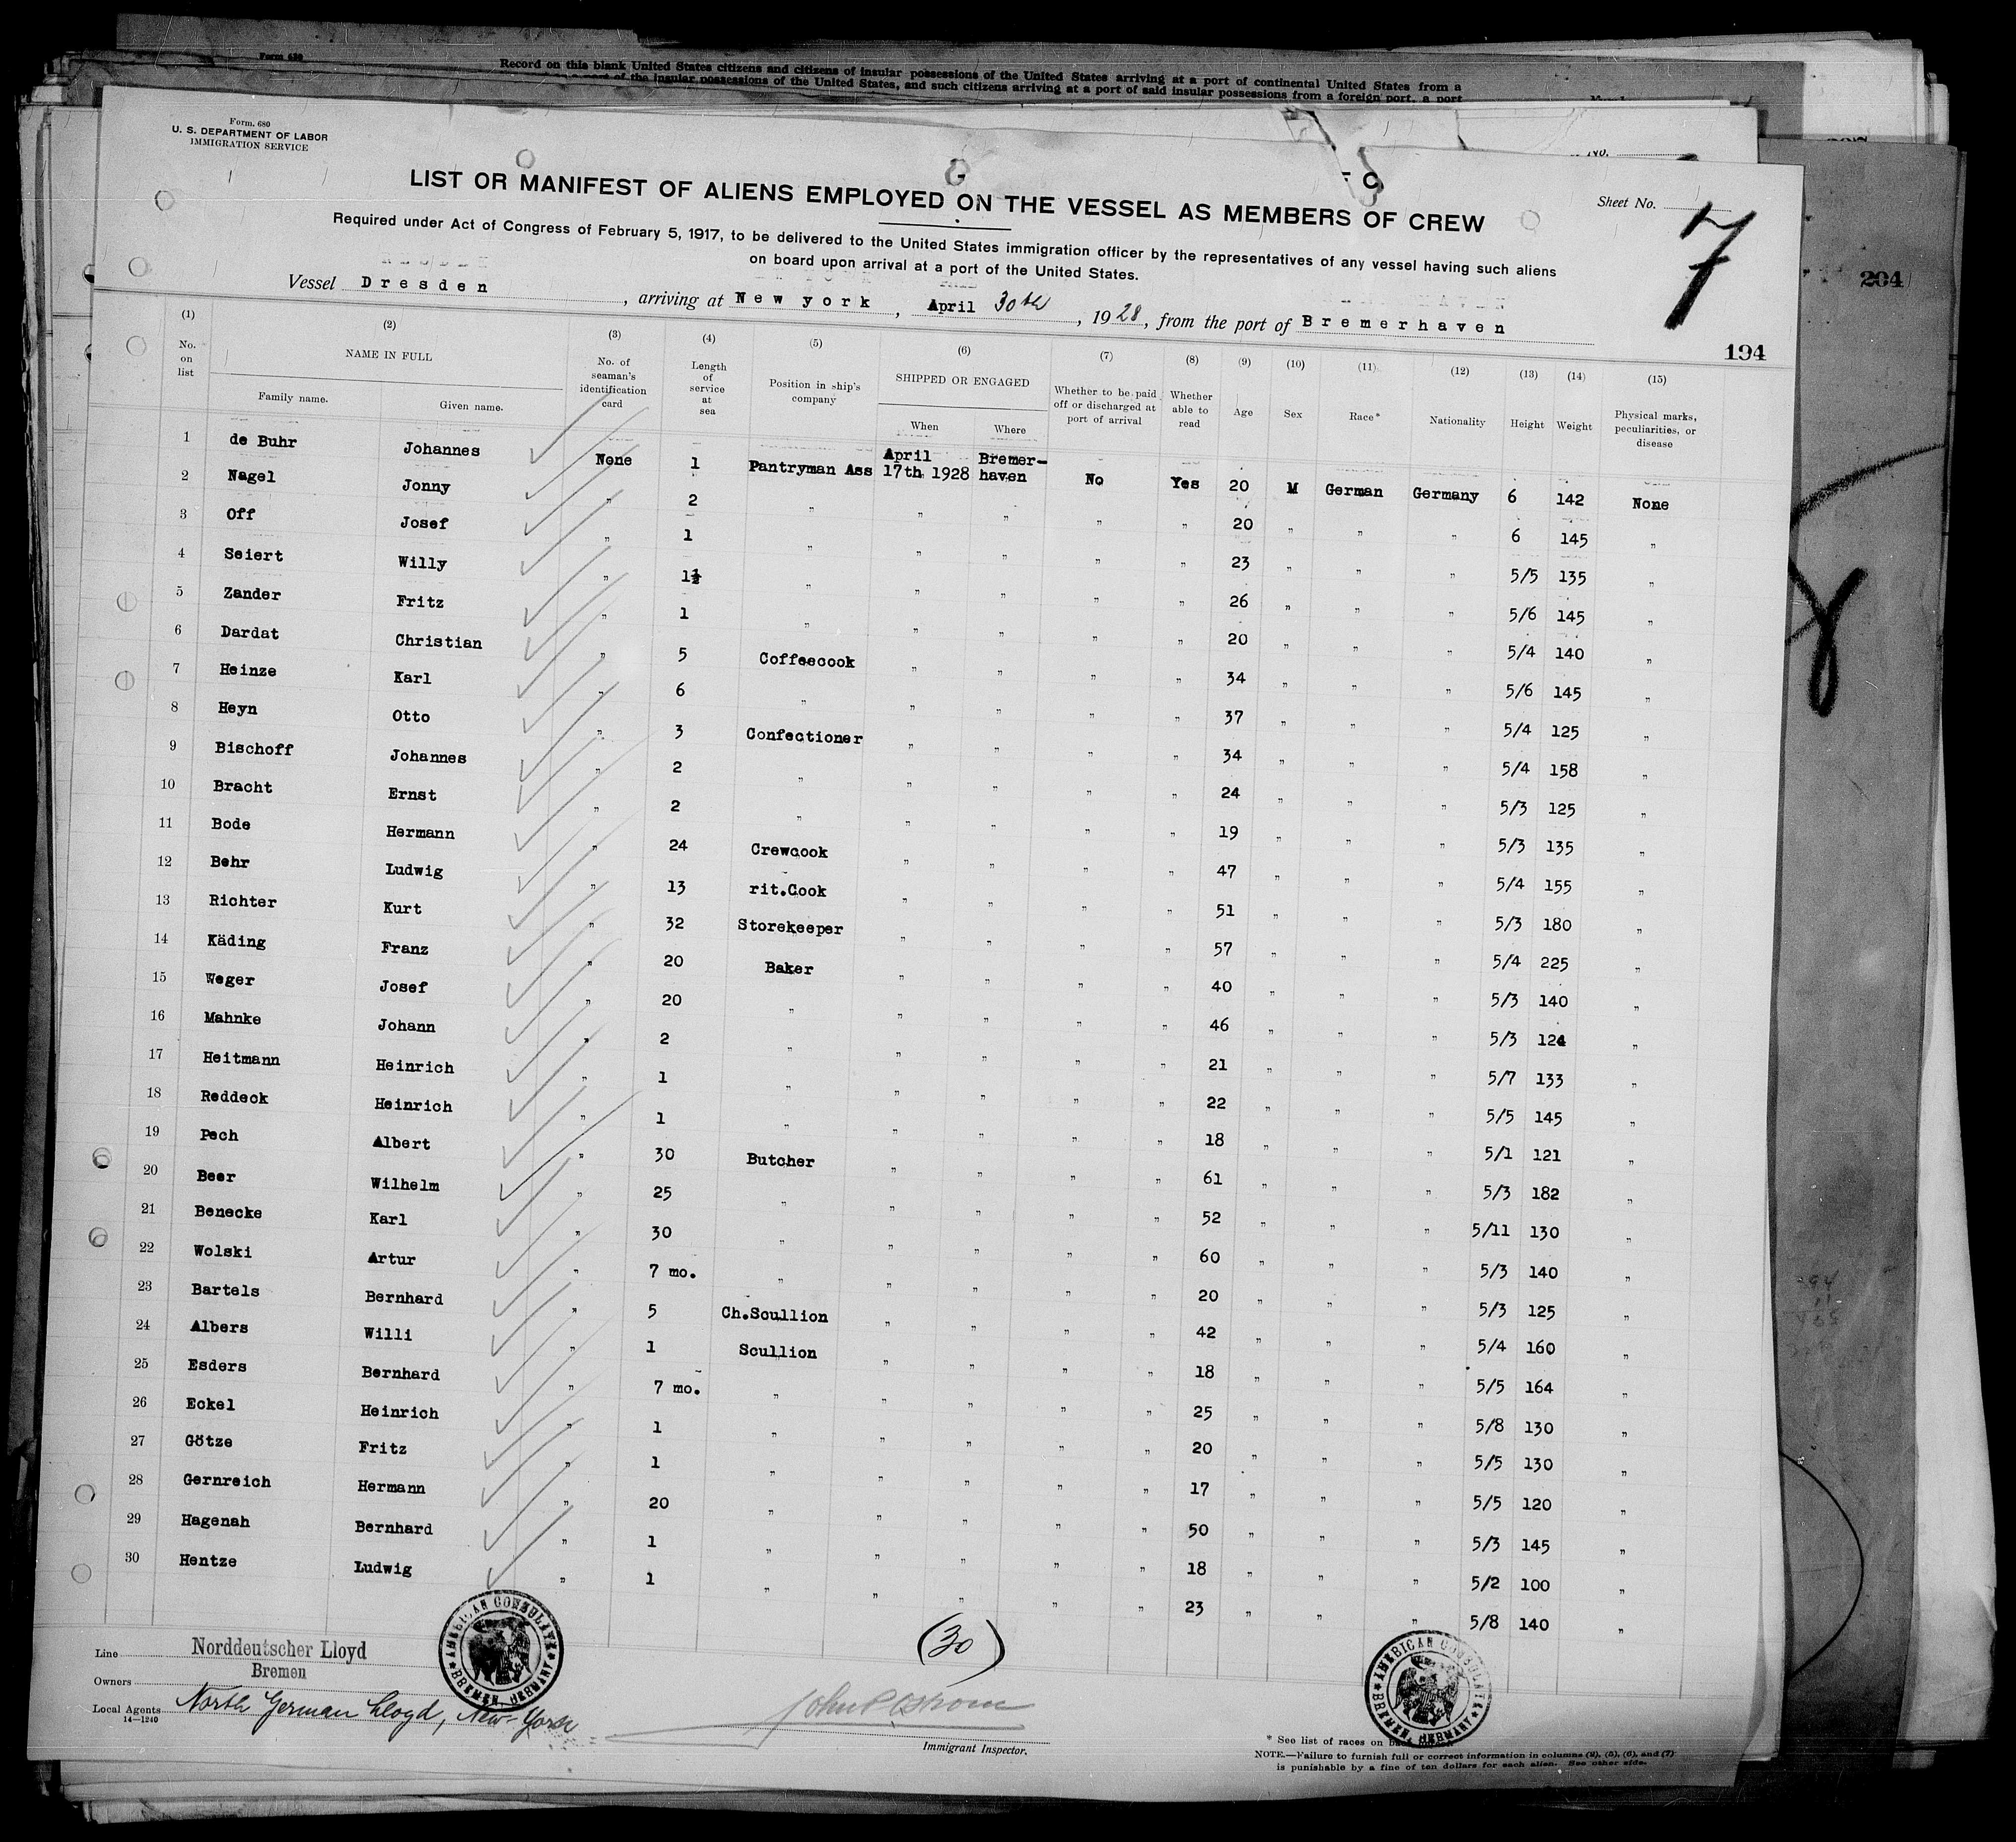 Form 630
Record on this blank United States citizens and citizens of insular possessions of the United States arriving at a port of continental United States from a
of the insular possessions of the United States, and such citizens arriving at a port of said insular possessions from a foreign port, a port
204
Form. 680
U. S. DEPARTMENT OF LABOR
IMMIGRATION SERVICE
No.
LIST OR MANIFEST OF ALIENS EMPLOYED ON THE VESSEL AS MEMBERS OF CREW
Sheet No. 7
Required under Act of Congress of February 5, 1917, to be delivered to the United States immigration officer by the representatives of any vessel having such aliens
on board upon arrival at a port of the United States.
Vessel Dresden, arriving at New york, April 30th, 1928, from the port of Bremerhaven
194
(1) (2) (3) (4) (5) (6) (7) (8) (9) (10) (11) (12) (13) (14) (15)
No. on list NAME IN FULL Family name. Given name. No. of seaman's identification card Length of service at sea Position in ship's company SHIPPED OR ENGAGED When Where Whether to be paid off or discharged at port of arrival Whether able to read Age Sex Race* Nationality Height Weight Physical marks, peculiarities, or disease
1 de Buhr Johannes None 1 Pantryman Ass April 17th 1928 Bremer-haven No Yes 20 M German Germany 6 142 None
2 Nagel Jonny " 2 " " " " " 20 " " " 6 145 "
3 Off Josef " 1 " " " " " 23 " " " 5/5 135 "
4 Seiert Willy " 1½ " " " " " 26 " " " 5/6 145 "
5 Zander Fritz " 1 " " " " " 20 " " " 5/4 140 "
6 Dardat Christian " 5 Coffeecook " " " " 34 " " " 5/6 145 "
7 Heinze Karl " 6 " " " " " 37 " " " 5/4 125 "
8 Heyn Otto " 3 Confectioner " " " " 34 " " " 5/4 158 "
9 Bischoff Johannes " 2 " " " " " 24 " " " 5/3 125 "
10 Bracht Ernst " 2 " " " " " 19 " " " 5/3 135 "
11 Bode Hermann " 24 Crewcook " " " " 47 " " " 5/4 155 "
12 Behr Ludwig " 13 rit.Cook " " " " 51 " " " 5/3 180 "
13 Richter Kurt " 32 Storekeeper " " " " 57 " " " 5/4 225 "
14 Käding Franz " 20 Baker " " " " 40 " " " 5/3 140 "
15 Weger Josef " 20 " " " " " 46 " " " 5/3 124 "
16 Mahnke Johann " 2 " " " " " 21 " " " 5/7 133 "
17 Heitmann Heinrich " 1 " " " " " 22 " " " 5/5 145 "
18 Reddeck Heinrich " 1 " " " " " 18 " " " 5/1 121 "
19 Pech Albert " 30 Butcher " " " " 61 " " " 5/3 182 "
20 Beer Wilhelm " 25 " " " " " 52 " " " 5/11 130 "
21 Benecke Karl " 30 " " " " " 60 " " " 5/3 140 "
22 Wolski Artur " 7 mo. " " " " " 20 " " " 5/3 125 "
23 Bartels Bernhard " 5 Ch.Scullion " " " " 42 " " " 5/4 160 "
24 Albers Willi " 1 Scullion " " " " 18 " " " 5/5 164 "
25 Esders Bernhard " 7 mo. " " " " " 25 " " " 5/8 130 "
26 Eckel Heinrich " 1 " " " " " 20 " " " 5/5 130 "
27 Götze Fritz " 1 " " " " " 17 " " " 5/5 120 "
28 Gernreich Hermann " 20 " " " " " 50 " " " 5/3 145 "
29 Hagenah Bernhard " 1 " " " " " 18 " " " 5/2 100 "
30 Hentze Ludwig " 1 " " " " " 23 " " " 5/8 140 "
(30)
Line Norddeutscher Lloyd
Bremen
Owners
Local Agents North German Lloyd, New-York
14—1240
AMERICAN CONSULATE BREMEN, GERMANY
Immigrant Inspector.
AMERICAN CONSULATE BREMEN, GERMANY
* See list of races on
NOTE.—Failure to furnish full or correct information in columns (2), (5), (6), and (7)
is punishable by a fine of ten dollars for each alien. See other side.